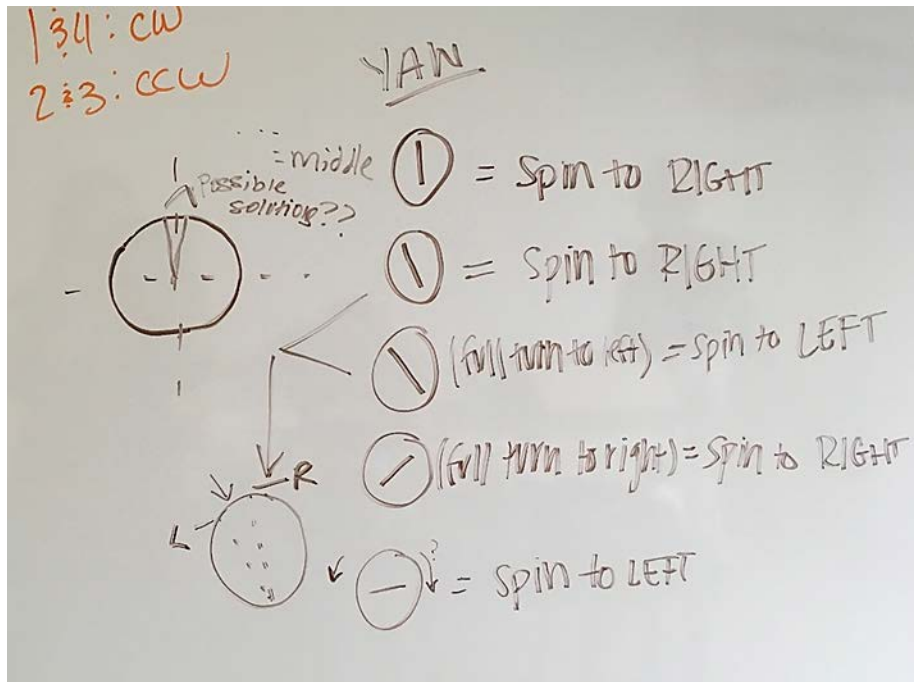 1&4: CW
2&3: CCW
YAW
... = middle
Possible
solution??
= Spin to RIGHT
= Spin to RIGHT
(full turn to left) = Spin to LEFT
(full turn to right) = Spin to RIGHT
R
L
?
= Spin to LEFT